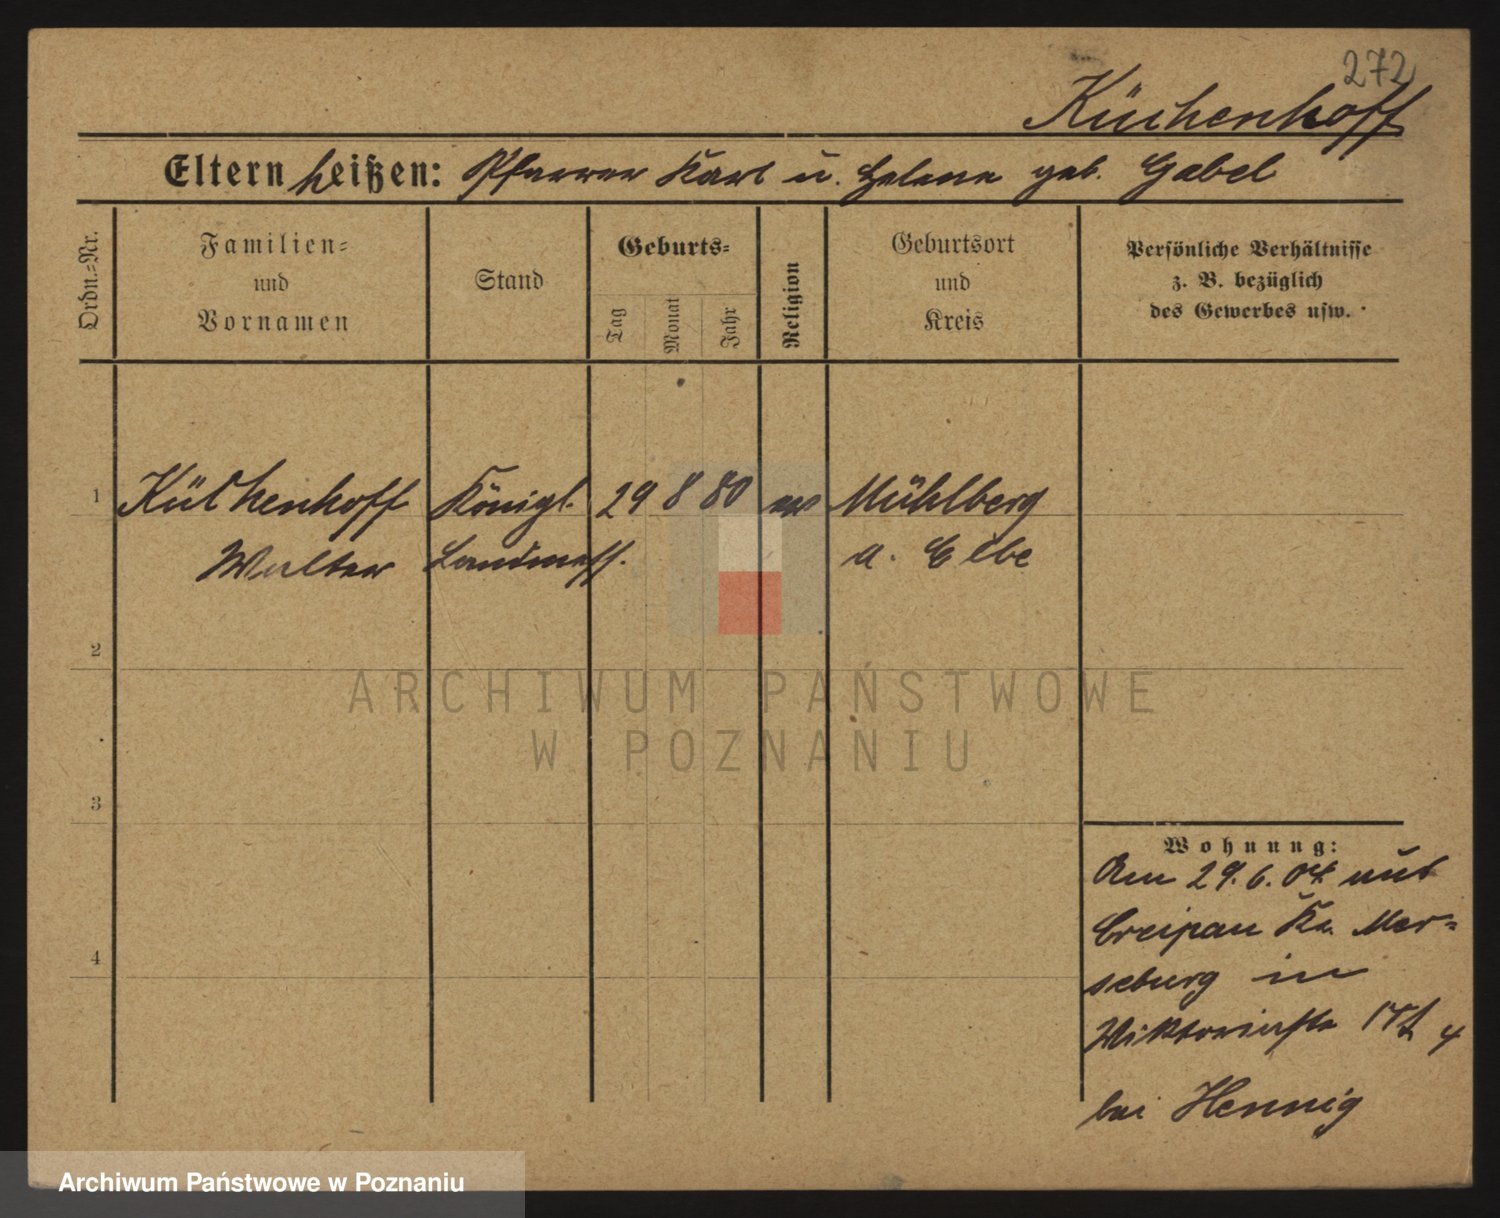 272
Küchenhoff
Eltern heißen: Pfarrer Karl u. Helene geb. Gabel
Ordn.=Nr.
Familien=
und
Vornamen
Stand
Geburts=
Tag
Monat
Jahr
Religion
Geburtsort
und
Kreis
Persönliche Verhältnisse
z. B. bezüglich
des Gewerbes usw.
1 Küchenhoff Königl. 29 8 80 ev Mühlberg
Walter Landmess. a. Elbe
2
3
4
Wohnung:
Am 29.6.04 aus
Creipau Kr. Mer=
seburg in
Viktoriastr
bei Hennig
ARCHIWUM PAŃSTWOWE
W POZNANIU
Archiwum Państwowe w Poznaniu